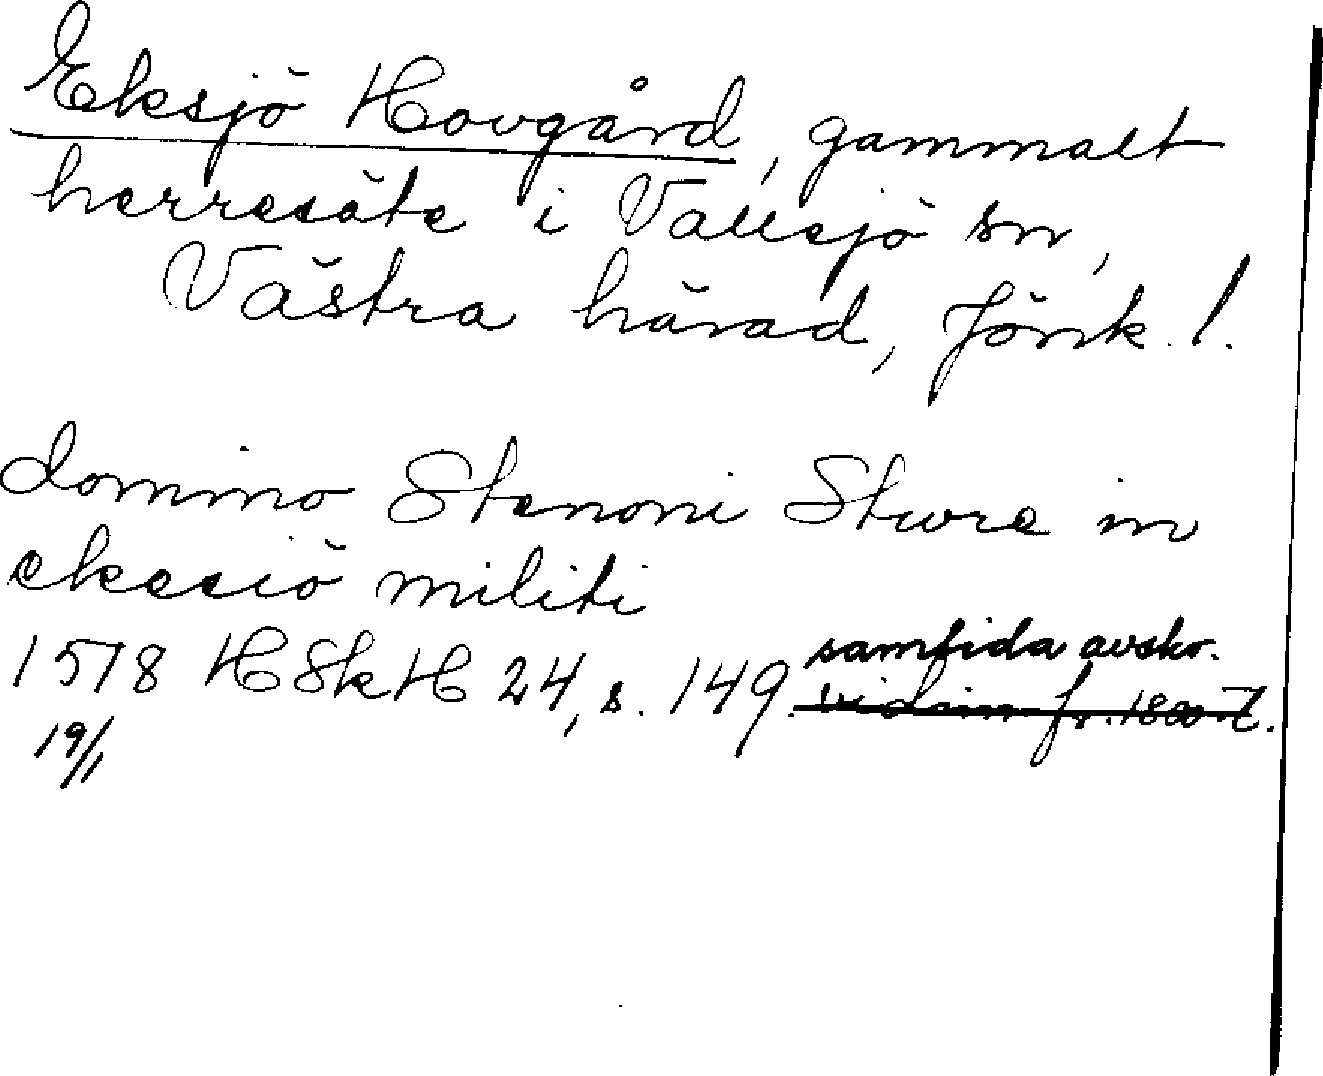 Eksjö Hovgård, gammalt
herresäte i Vallsjö sn,
Västra härad, Jönk. l.
domino Stenoni Sture in
ekesiö militi
1518 HSkH 24, s. 149. samtida avskr.
vidim fr. 1800-t.
19/1